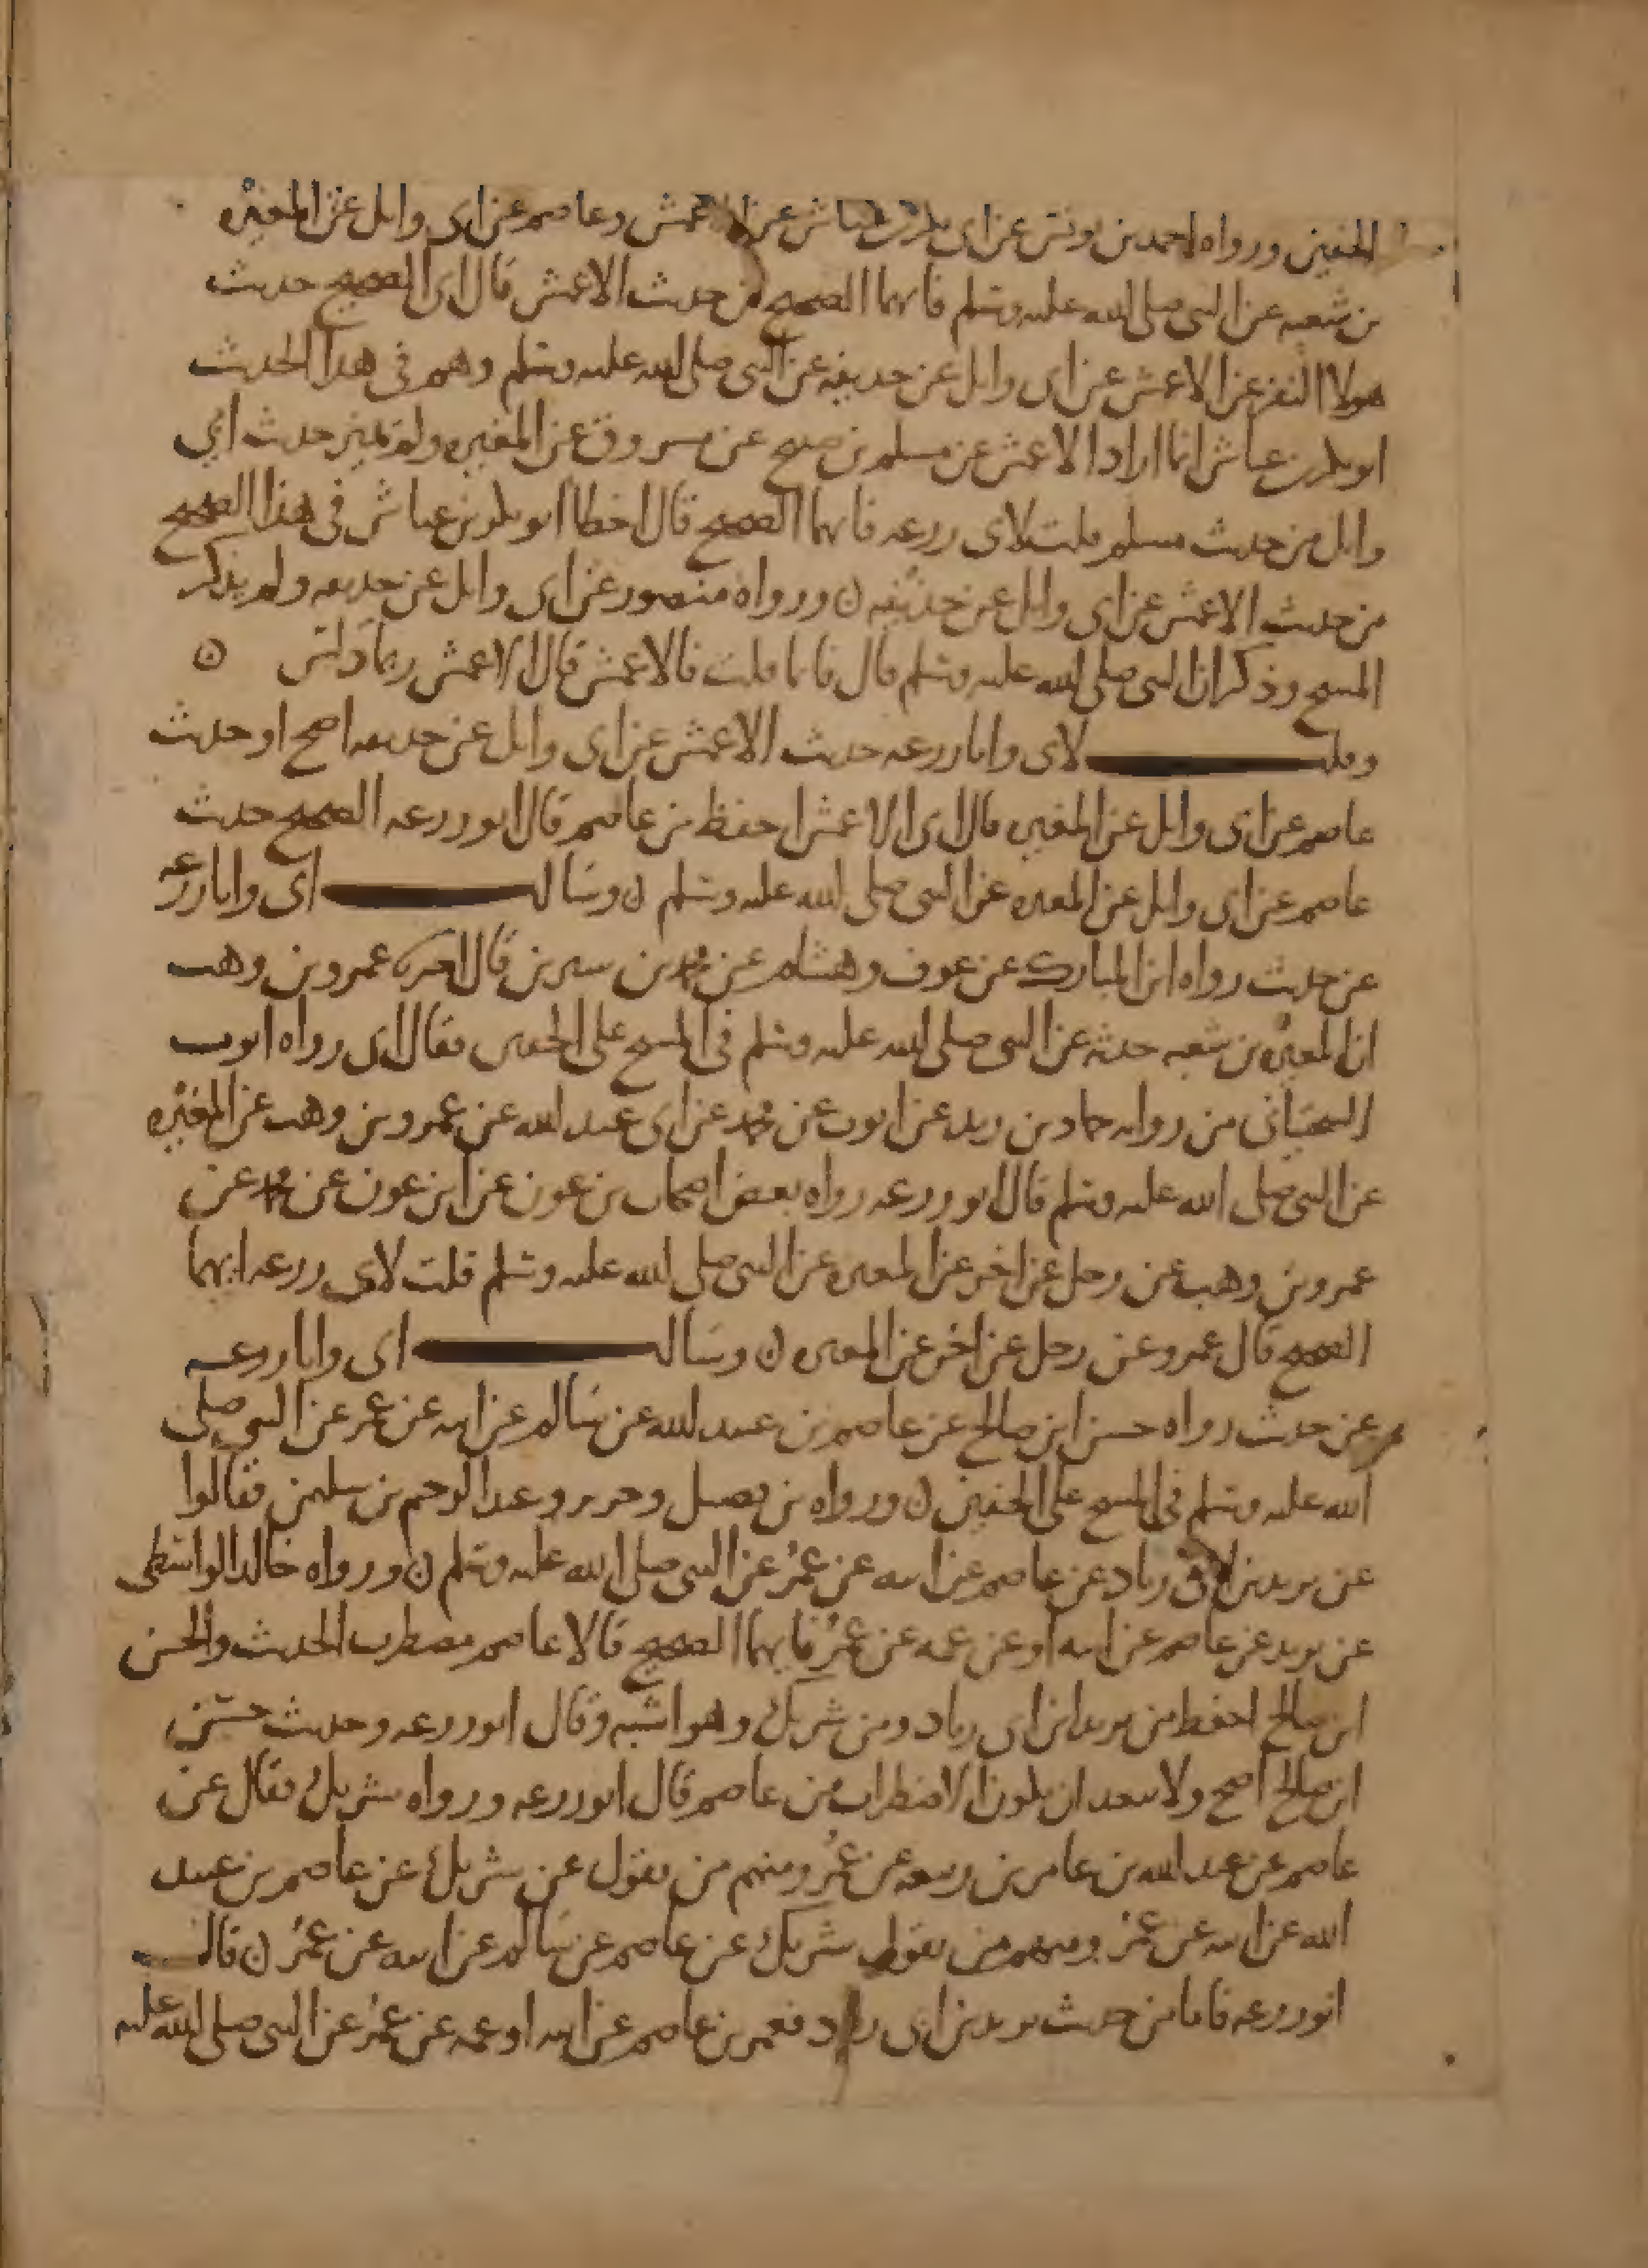 الخفين ورواه احمد بن يونس عن ابى بكر بن عياش عن الاعمش وعاصم عن ابى وايل عن المغيره
بن شعبه عن النبى صلى الله عليه وسلم فايهما الصحيح من حديث الاعمش قال ابى الصحيح حديث
هولا النفر عن الاعمش عن ابى وايل عن حذيفه عن النبى صلى الله عليه وسلم وهم فى هذا الحديث
ابو بكر بن عياش انما اراد الاعمش عن مسلم بن صبيح عن مسروق عن المغيره ولم يميز حديث ابي
وايل من حديث مسلم قلت لابى زرعه فايهما الصحيح قال اخطا ابو بكر بن عياش فى هذا الصحيح
من حديث الاعمش عن ابى وايل عن حذيفه ن ورواه منصور عن ابى وايل عن حذيفه ولم يذكر
المسح وذكر ان النبى صلى الله عليه وسلم قال بال قايما قلت فالاعمش قال الاعمش ربما دلس ن
وقلت لابى وابا زرعه حديث الاعمش عن ابى وايل عن حذيفه اصح او حديث
عاصم عن ابى وايل عن المغيره قال ابى الاعمش احفظ من عاصم قال ابو زرعه الصحيح حديث
عاصم عن ابى وايل عن المغيره عن النبى صلى الله عليه وسلم ن وسالت ابى وابا زرعه
عن حديث رواه ابن المبارك عن عوف وهشام عن محمد بن سيرين قال عمرو بن وهب
ان المغيره بن شعبه حدثه عن النبى صلى الله عليه وسلم فى المسح على الخفين فقال ابى رواه ايوب
السختيانى من روايه حماد بن زيد عن ايوب عن محمد عن ابى عبد الله عن عمرو بن وهب عن المغيره
عن النبى صلى الله عليه وسلم قال ابو زرعه رواه بعض اصحاب بن عون عن ابن عون عن محمد عن
عمرو بن وهب عن رجل عن اخر عن المغيره عن النبى صلى الله عليه وسلم قلت لابى زرعه ايهما
الصحيح قال عمرو عن رجل عن اخر عن المغيره ن وسالت ابى وابا زرعه
عن حديث رواه حسن ابن صالح عن عاصم بن عبيد الله عن سالم عن ابيه عن عمر عن النبى صلى
الله عليه وسلم فى المسح على الخفين ن ورواه بن فضيل وجرير وعبد الرحيم بن سليمن فقالوا
عن يزيد بن ابى زياد عن عاصم عن ابيه عن عمر عن النبى صلى الله عليه وسلم ن ورواه خالد الواسطى
عن يزيد عن عاصم عن ابيه او عن عمه عن عمر فايهما الصحيح قالا عاصم مضطرب الحديث والحسن
ابن صالح احفظ من يزيد ابن ابى زياد ومن شريك وهو اشبه وقال ابو زرعه وحديث حسن
ابن صالح اصح ولا يبعد ان يكون الاضطراب من عاصم قال ابو زرعه ورواه شريك فقال عن
عاصم عن عبد الله بن عامر بن ربيعه عن عمر ومنهم من يقول عن شريك عن عاصم بن عبيد
الله عن ابيه عن عمر ومنهم من يقول شريك عن عاصم عن سالم عن ابيه عن عمر ن قال
ابو زرعه فاما من حديث يزيد بن ابى زياد فعمر بن عاصم عن ابيه او عمه عن عمر عن النبى صلى الله عليه